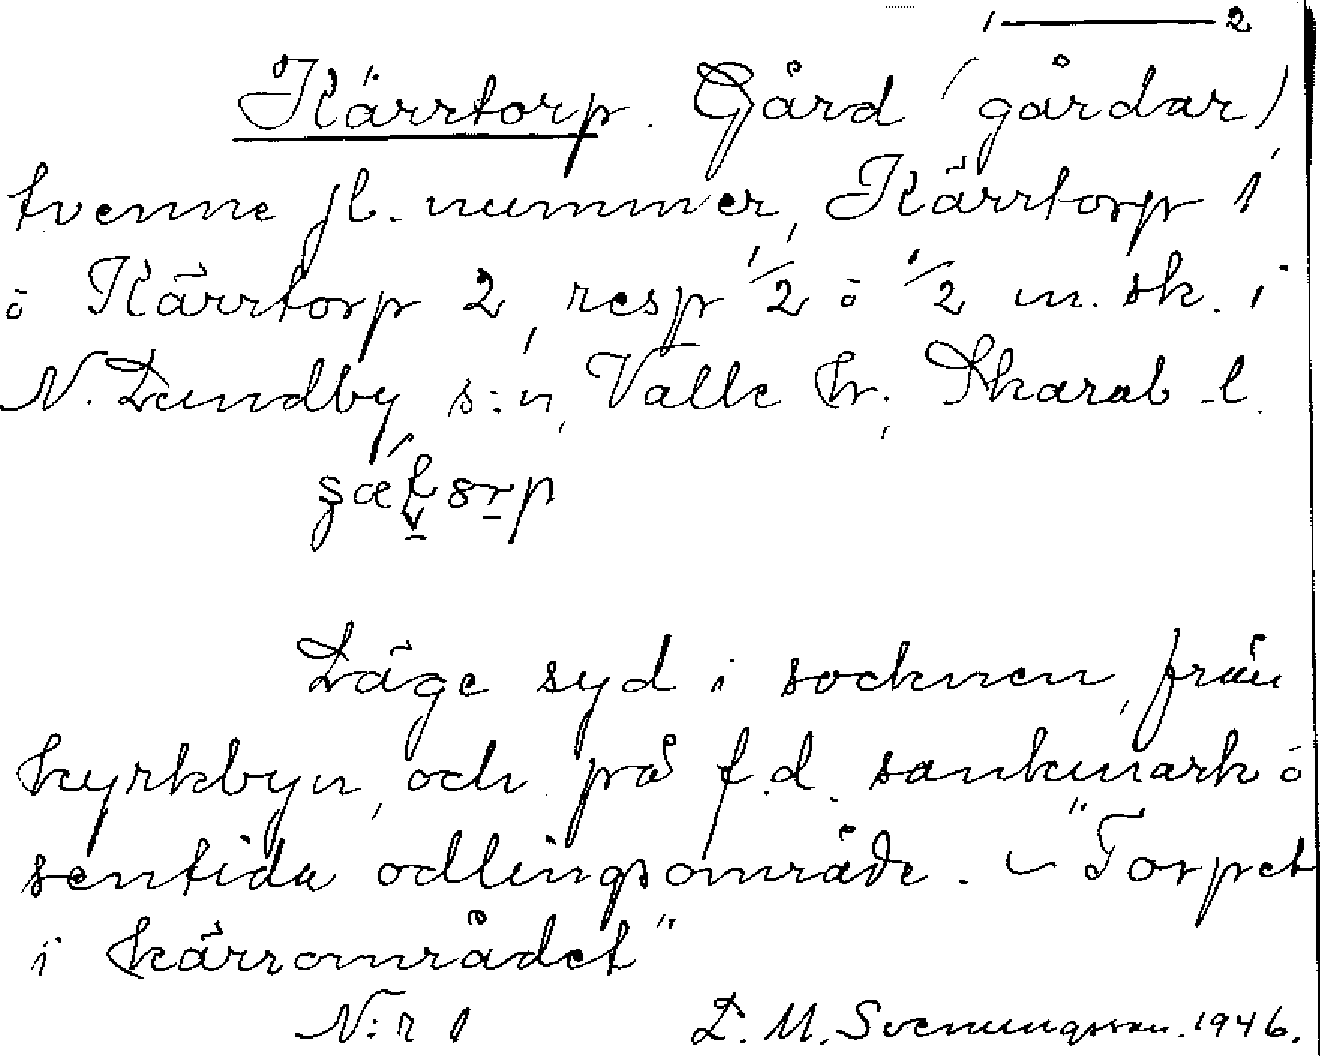 1 — 2
Kärrtorp. Gård (gårdar)
tvenne jb. nummer, Kärrtorp 1
o Kärrtorp 2, resp 1/2 o 1/2 m. sk. i
N. Lundby s:n, Valle hr; Skarab -l.
Läge syd i socknen, från
kyrkbyn, och på f.d. sankmark o
sentida odlingsområde. – "Torpet
i kärrområdet"
N:r 1 L. M. Svenungsson. 1946.